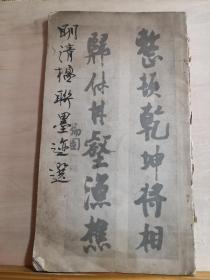 整頓乾坤將相
歸休丘壑漁樵
明清楹聯墨迹選